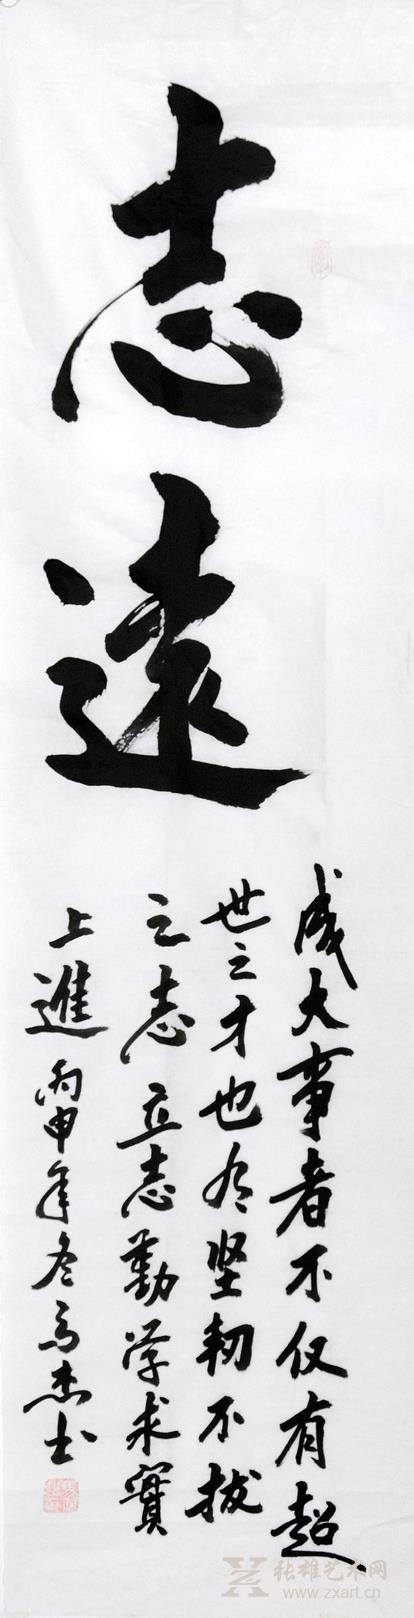 志遠
成大事者不仅有超
世之才也有坚韧不拔
之志立志勤学求實
上進 丙申年冬 杰书
张雄艺术网
www.zxart.cn